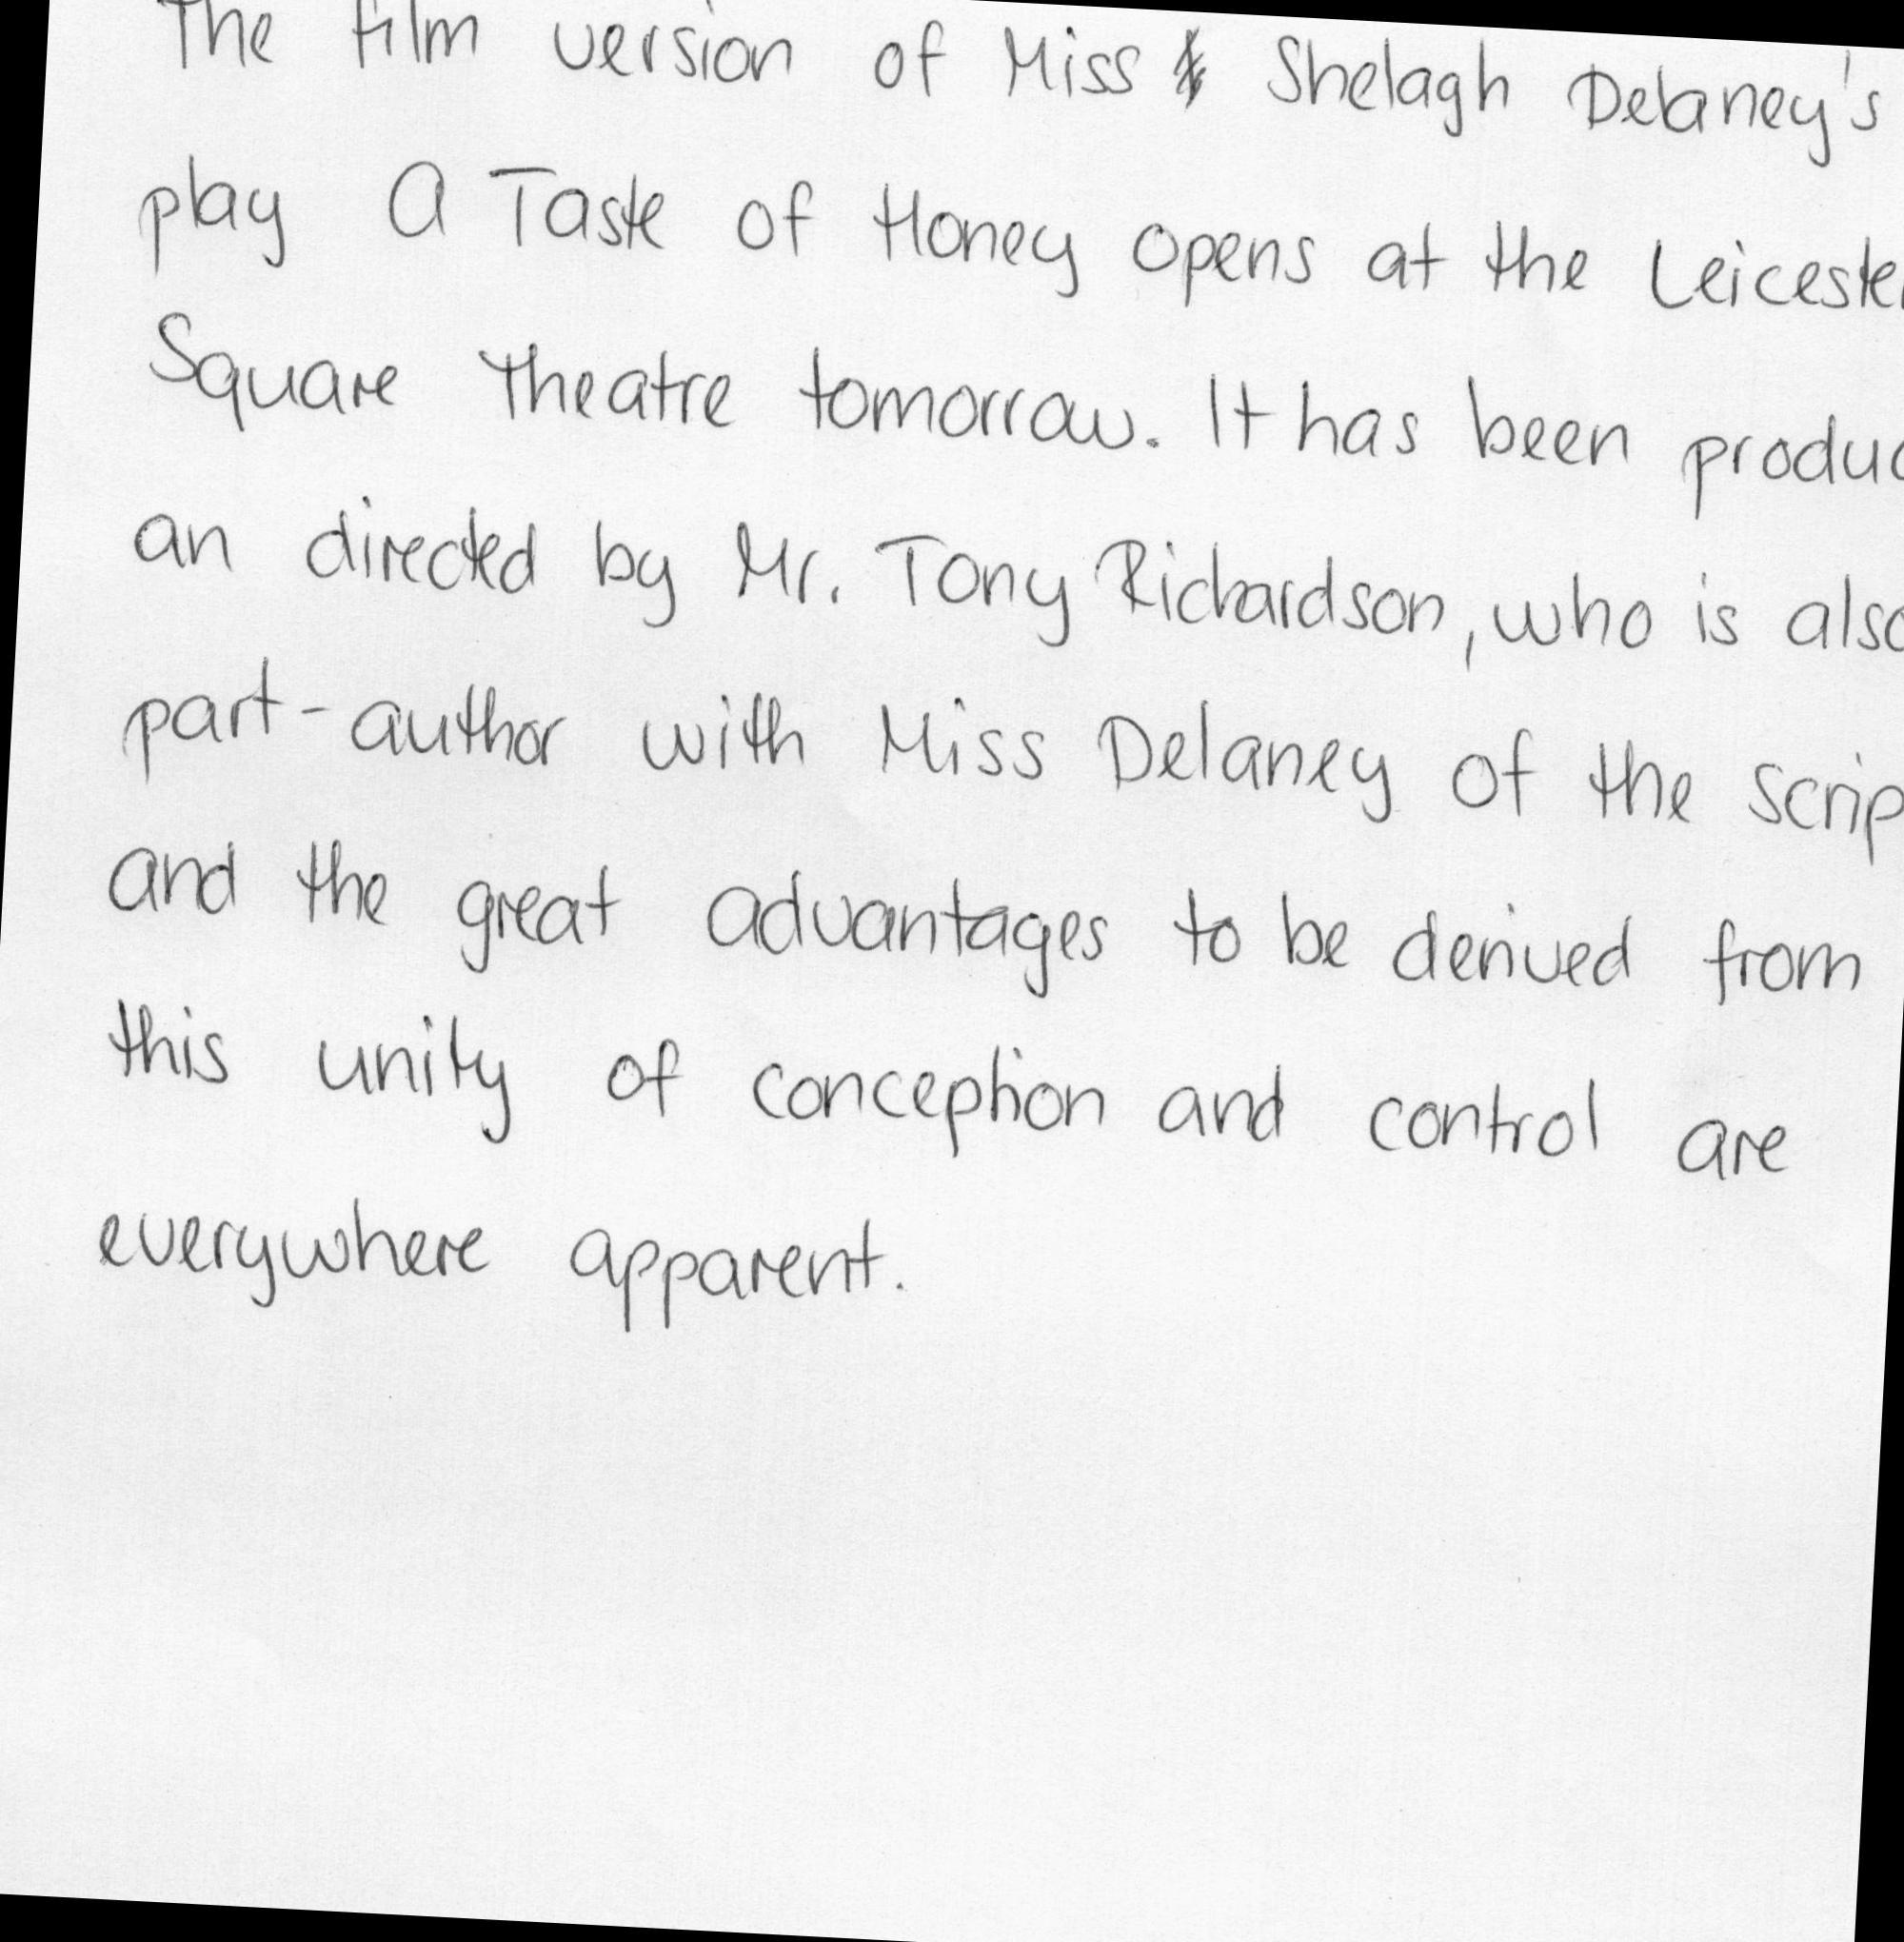 The film version of Miss Shelagh Delaney's
play A Taste of Honey opens at the Leicester
Square Theatre tomorrow. It has been produc
an directed by Mr. Tony Richardson, who is also
part-author with Miss Delaney of the scrip
and the great advantages to be derived from
this unity of conception and control are
everywhere apparent.